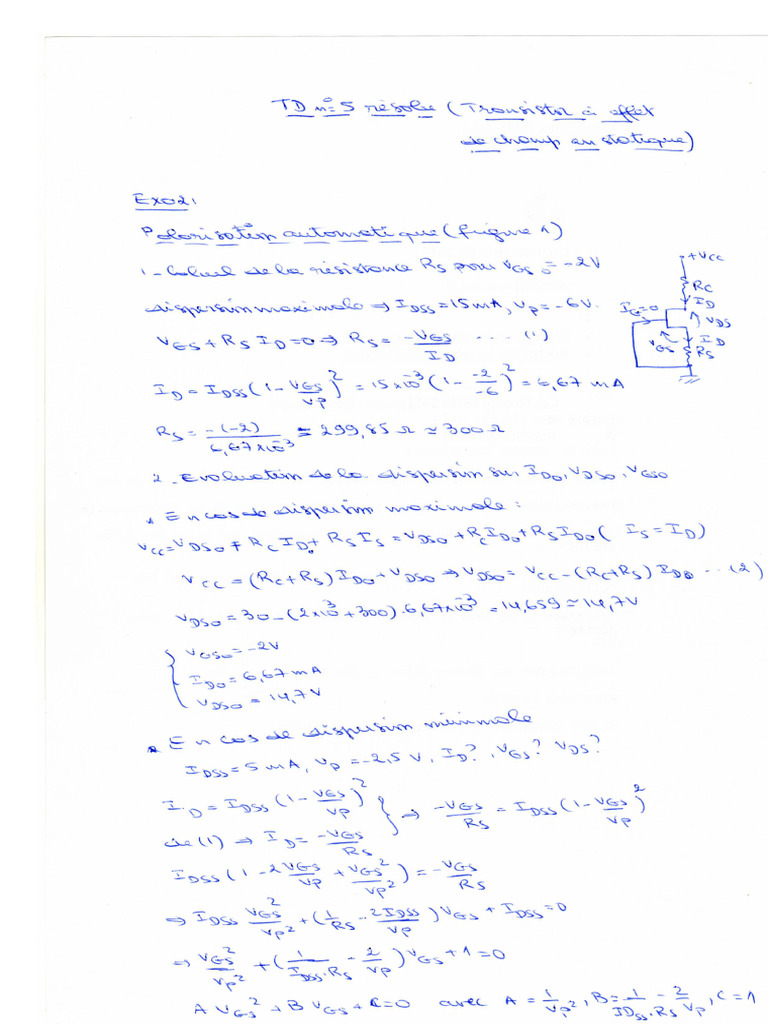 TD n°5 résolu (Transistor à effet
de champ en statique)
Exo2:
Polarisation automatique (figure 1)
1 - Calcul de la résistance RS pour VGS0 = -2V
dispersion maximale ⇒ IDSS = 15mA, VP = -6V.
VGS + RS ID = 0 ⇒ RS = -VGS/ID .... (1)
ID = IDSS(1 - VGS/VP)² = 15×10⁻³(1 - -2/-6)² = 6,67 mA
RS = -(-2)/6,67×10⁻³ ≃ 299,85 Ω ≃ 300 Ω
+VCC
RC
ID
IG=0
VDS
VGS
ID
RS
2 - Evaluation de la dispersion sur ID0, VDS0, VGS0
* En cas de dispersion maximale :
VCC = VDS0 + RC ID0 + RS IS = VDS0 + RC ID0 + RS ID0 ( IS = ID)
VCC = (RC+RS) ID0 + VDS0 ⇒ VDS0 = VCC - (RC+RS) ID0 ... (2)
VDS0 = 30 - (2×10³ + 300) . 6,67×10⁻³ = 14,659 ≃ 14,7V
{ VGS0 = -2V
ID0 = 6,67 mA
VDS0 = 14,7V
* En cas de dispersion minimale
IDSS = 5 mA, VP = -2,5 V, ID? , VGS? VDS?
ID = IDSS (1 - VGS/VP)² } ⇒ -VGS/RS = IDSS (1 - VGS/VP)²
de (1) ⇒ ID = -VGS/RS
IDSS (1 - 2 VGS/VP + VGS²/VP²) = -VGS/RS
⇒ IDSS VGS²/VP² + (1/RS - 2IDSS/VP) VGS + IDSS = 0
⇒ VGS²/VP² + (1/IDSS.RS - 2/VP) VGS + 1 = 0
A VGS² + B VGS + C = 0 avec A = 1/VP², B = 1/IDSS.RS - 2/VP, C = 1